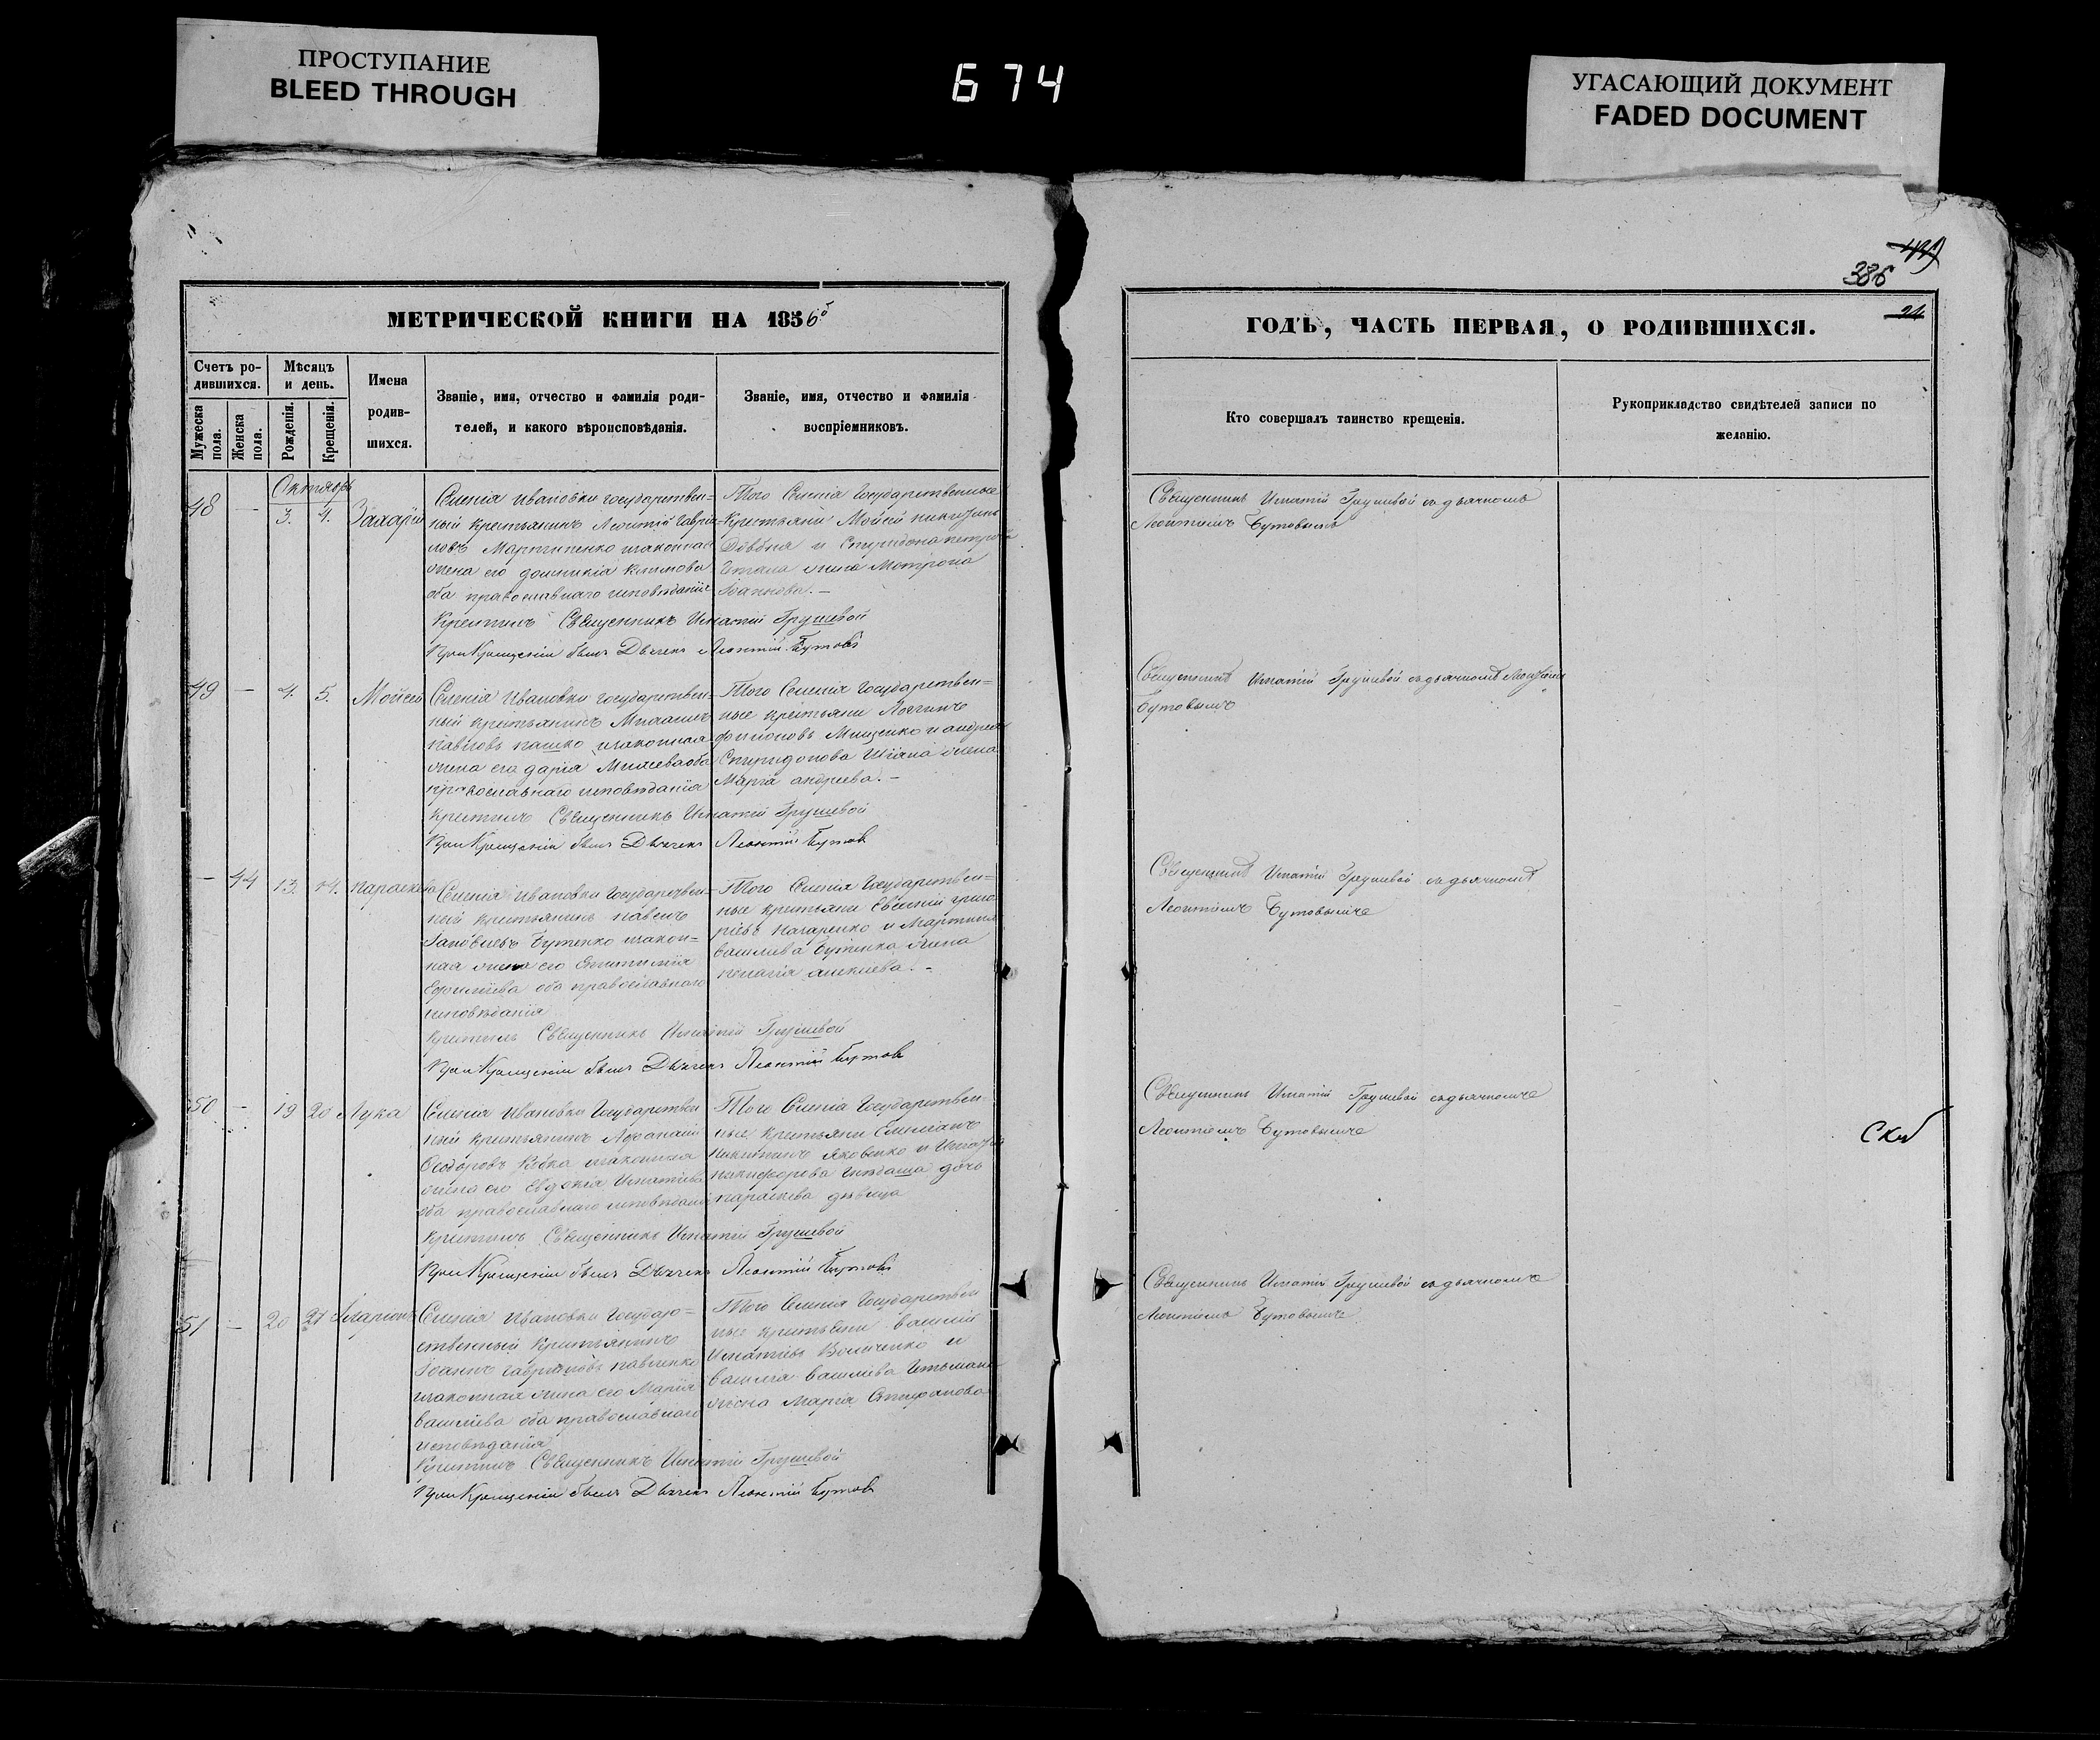 ПРОСТУПАНИЕ
BLEED THROUGH
674
УГАСАЮЩИЙ ДОКУМЕНТ
FADED DOCUMENT
386
МЕТРИЧЕСКОЙ КНИГИ НА 1856
ГОДЪ, ЧАСТЬ ПЕРВАЯ, О РОДИВШИХСЯ.
24
Счетъ ро-
дившихся.
Мѣсяцъ
и день.
Мужеска
пола.
Женска
пола.
Рожденія.
Крещенія.
Имена
родив-
шихся.
Званіе, имя, отчество и фамилія роди-
телей, и какого вѣроисповѣданія.
Званіе, имя, отчество и фамилія
воспріемниковъ.
Кто совершалъ таинство крещенія.
Рукоприкладство свидѣтелей записи по
желанію.
Октябрь
48 — 3. 4. Захарій
Селенія Ивановки государствен=
ный крестьянинъ Леонтій Гаврі
ловъ Мартиненко изаконная
жена его Домникія Климова
оба православнаго исповѣданія
Того Селенія Государственные
Крестьяни Мойсей
и Спиридона Петрова
жена Мотрона
Іоаннова.—
Крестилъ Священникъ Игнатій Грушевой
При Крещеніи былъ Дьячекъ Леонтій Бутовъ
Священникъ Игнатій Грушевой съ дьячкомъ
Леонтіемъ Бутовымъ
49 — 4. 5. Мойсей
Селенія Ивановки государствен=
ный крестьянинъ Михаилъ
Павловъ Пашко изаконная
жена его Дарія оба
православнаго исповѣданія
Того Селенія Государствен=
ные крестьяни Логгинъ
Мищенко и Андрея
Спиридонова жена
Марія Андреева.—
Крестилъ Священникъ Игнатій Грушевой
При Крещеніи былъ Дьячекъ Леонтій Бутовъ
Священникъ Игнатій Грушевой съ дьячкомъ Леонтіемъ
Бутовымъ
— 44 13. 14. Параскева
Селенія Ивановки Государствен=
ный крестьянинъ Павелъ
Бутенко изакон=
ная жена его
оба православнаго
исповѣданія
Того Селенія Государствен=
ные крестьяни Евсевій Григо
рьевъ Назаренко и Мартина
Васильева Бутенка жена
Пелагія Алексиева.—
Крестилъ Священникъ Игнатій Грушевой
При Крещеніи былъ Дьячекъ Леонтій Бутовъ
Священникъ Игнатій Грушевой съ дьячкомъ
Леонтіемъ Бутовымъ
50 — 19 20 Лука
Селенія Ивановки Государствен
ный крестьянинъ Афанасій
Феодоровъ изаконная
жена его Евдокія Игнатіева
оба православнаго исповѣданія
Того Селенія Государствен=
ные крестьяни Емиліанъ
Никитинъ Яковенко и
Никифорова дочь
Параскева дѣвица
Крестилъ Священникъ Игнатій Грушевой
При Крещеніи былъ Дьячекъ Леонтій Бутовъ
Священникъ Игнатій Грушевой съ дьячкомъ
Леонтіемъ Бутовымъ
51 — 20 21 Иларіонъ
Селенія Ивановки Государ=
ственный Крестьянинъ
Іоаннъ Гавриловъ Павленко
изаконная жена его Марія
Васильева оба православнаго
исповѣданія
Того Селенія Государствен
ные крестьяни Василій
Игнатіевъ и
Василія Васильева
жена Марія
Крестилъ Священникъ Игнатій Грушевой
При Крещеніи былъ Дьячекъ Леонтій Бутовъ
Священникъ Игнатій Грушевой съ дьячкомъ
Леонтіемъ Бутовымъ